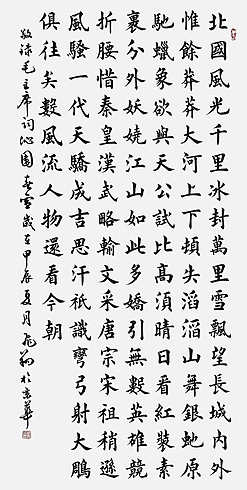 北國風光千里冰封萬里雪飄望長城內外
惟餘莽莽大河上下頓失滔滔山舞銀蛇原
馳蠟象欲與天公試比高須晴日看紅裝素
裹分外妖嬈江山如此多嬌引無數英雄競
折腰惜秦皇漢武略輸文采唐宗宋祖稍遜
風騷一代天驕成吉思汗祇識彎弓射大鵰
俱往矣數風流人物還看今朝
敬錄毛主席詞沁園春雪歲在甲辰夏月於京華